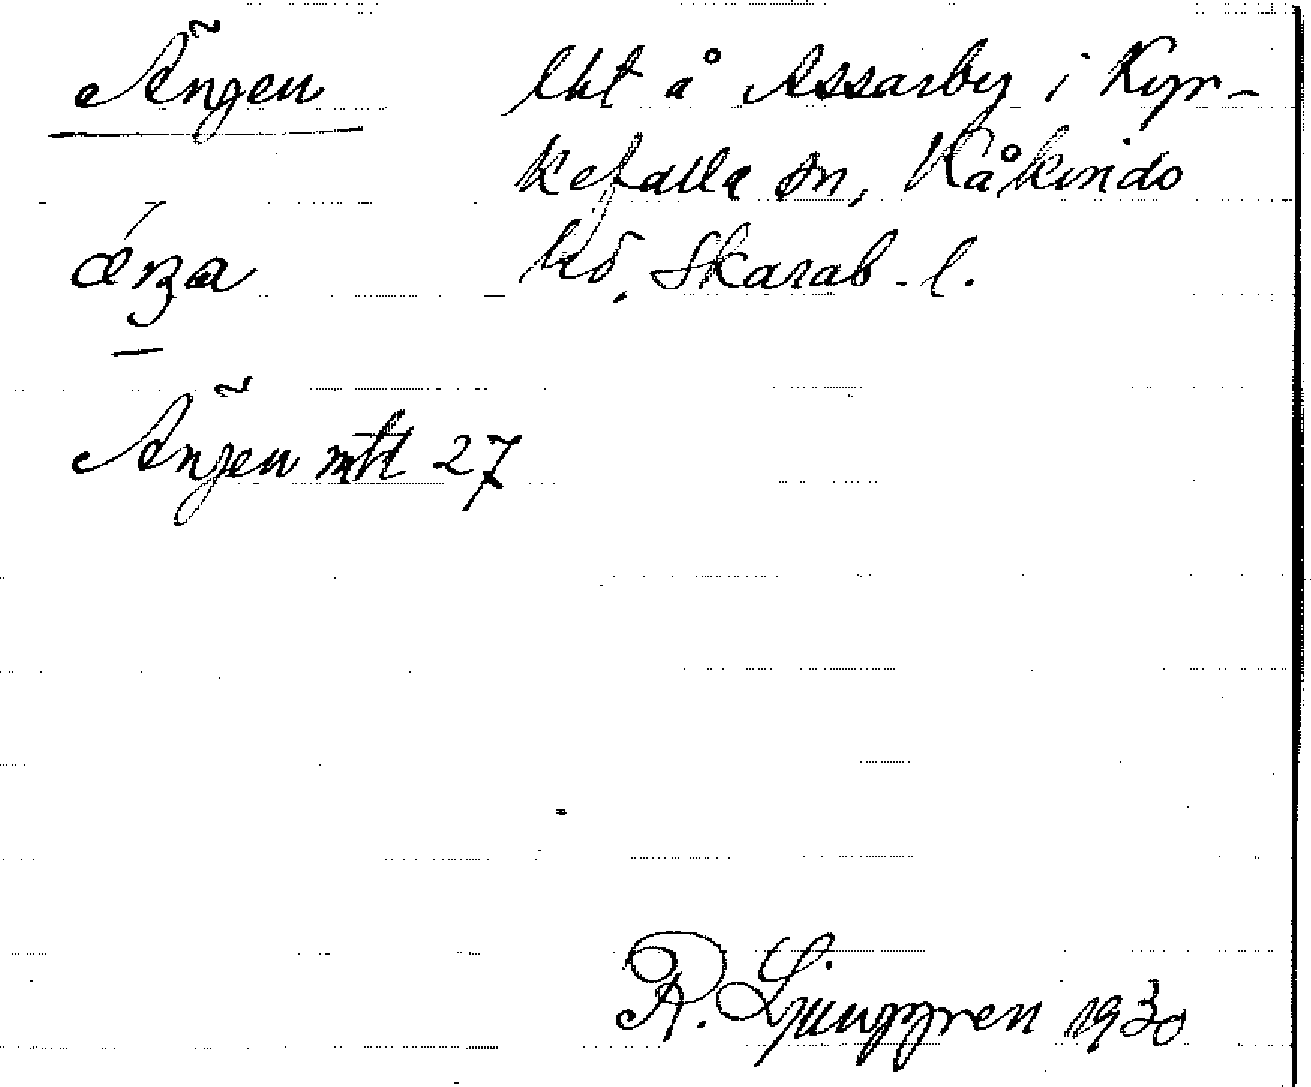 Ängen lht å Assarby i Kyr-
kefalla sn, Kåkinds
hd, Skarab. l.
Ängen mtl 27
R. Ljunggren 1930